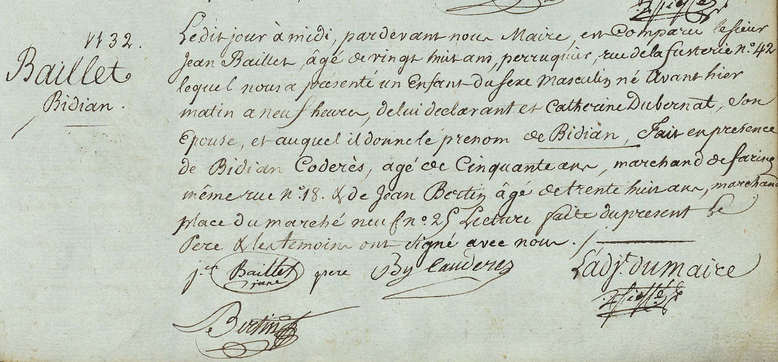 1132.
Baillet
Bidian.
Ledit jour à midi, pardevant nous Maire, en Comparu le sieur
Jean Baillet, âgé de vingt huit ans, perruquier, rue de la fusterie n.° 42
lequel nous a présenté un Enfant du sexe Masculin né avant hier
matin a neuf heures, de lui déclarant et Catherine Dubernat, Son
Epouse, et auquel il donne le prénom de Bidian, Fait en présence
de Bidian Coderès, agé de Cinquante ans, marchand de farine
même rue n.° 18. & de Jean Bertin âgé de trente huit ans, marchand
place du marché neuf n.° 25 Lecture faite du present le
Pere & les temoins ont signé avec nous.
j.n Baillet pere By Cauderes L'adj.t du maire
jeune
Bertin